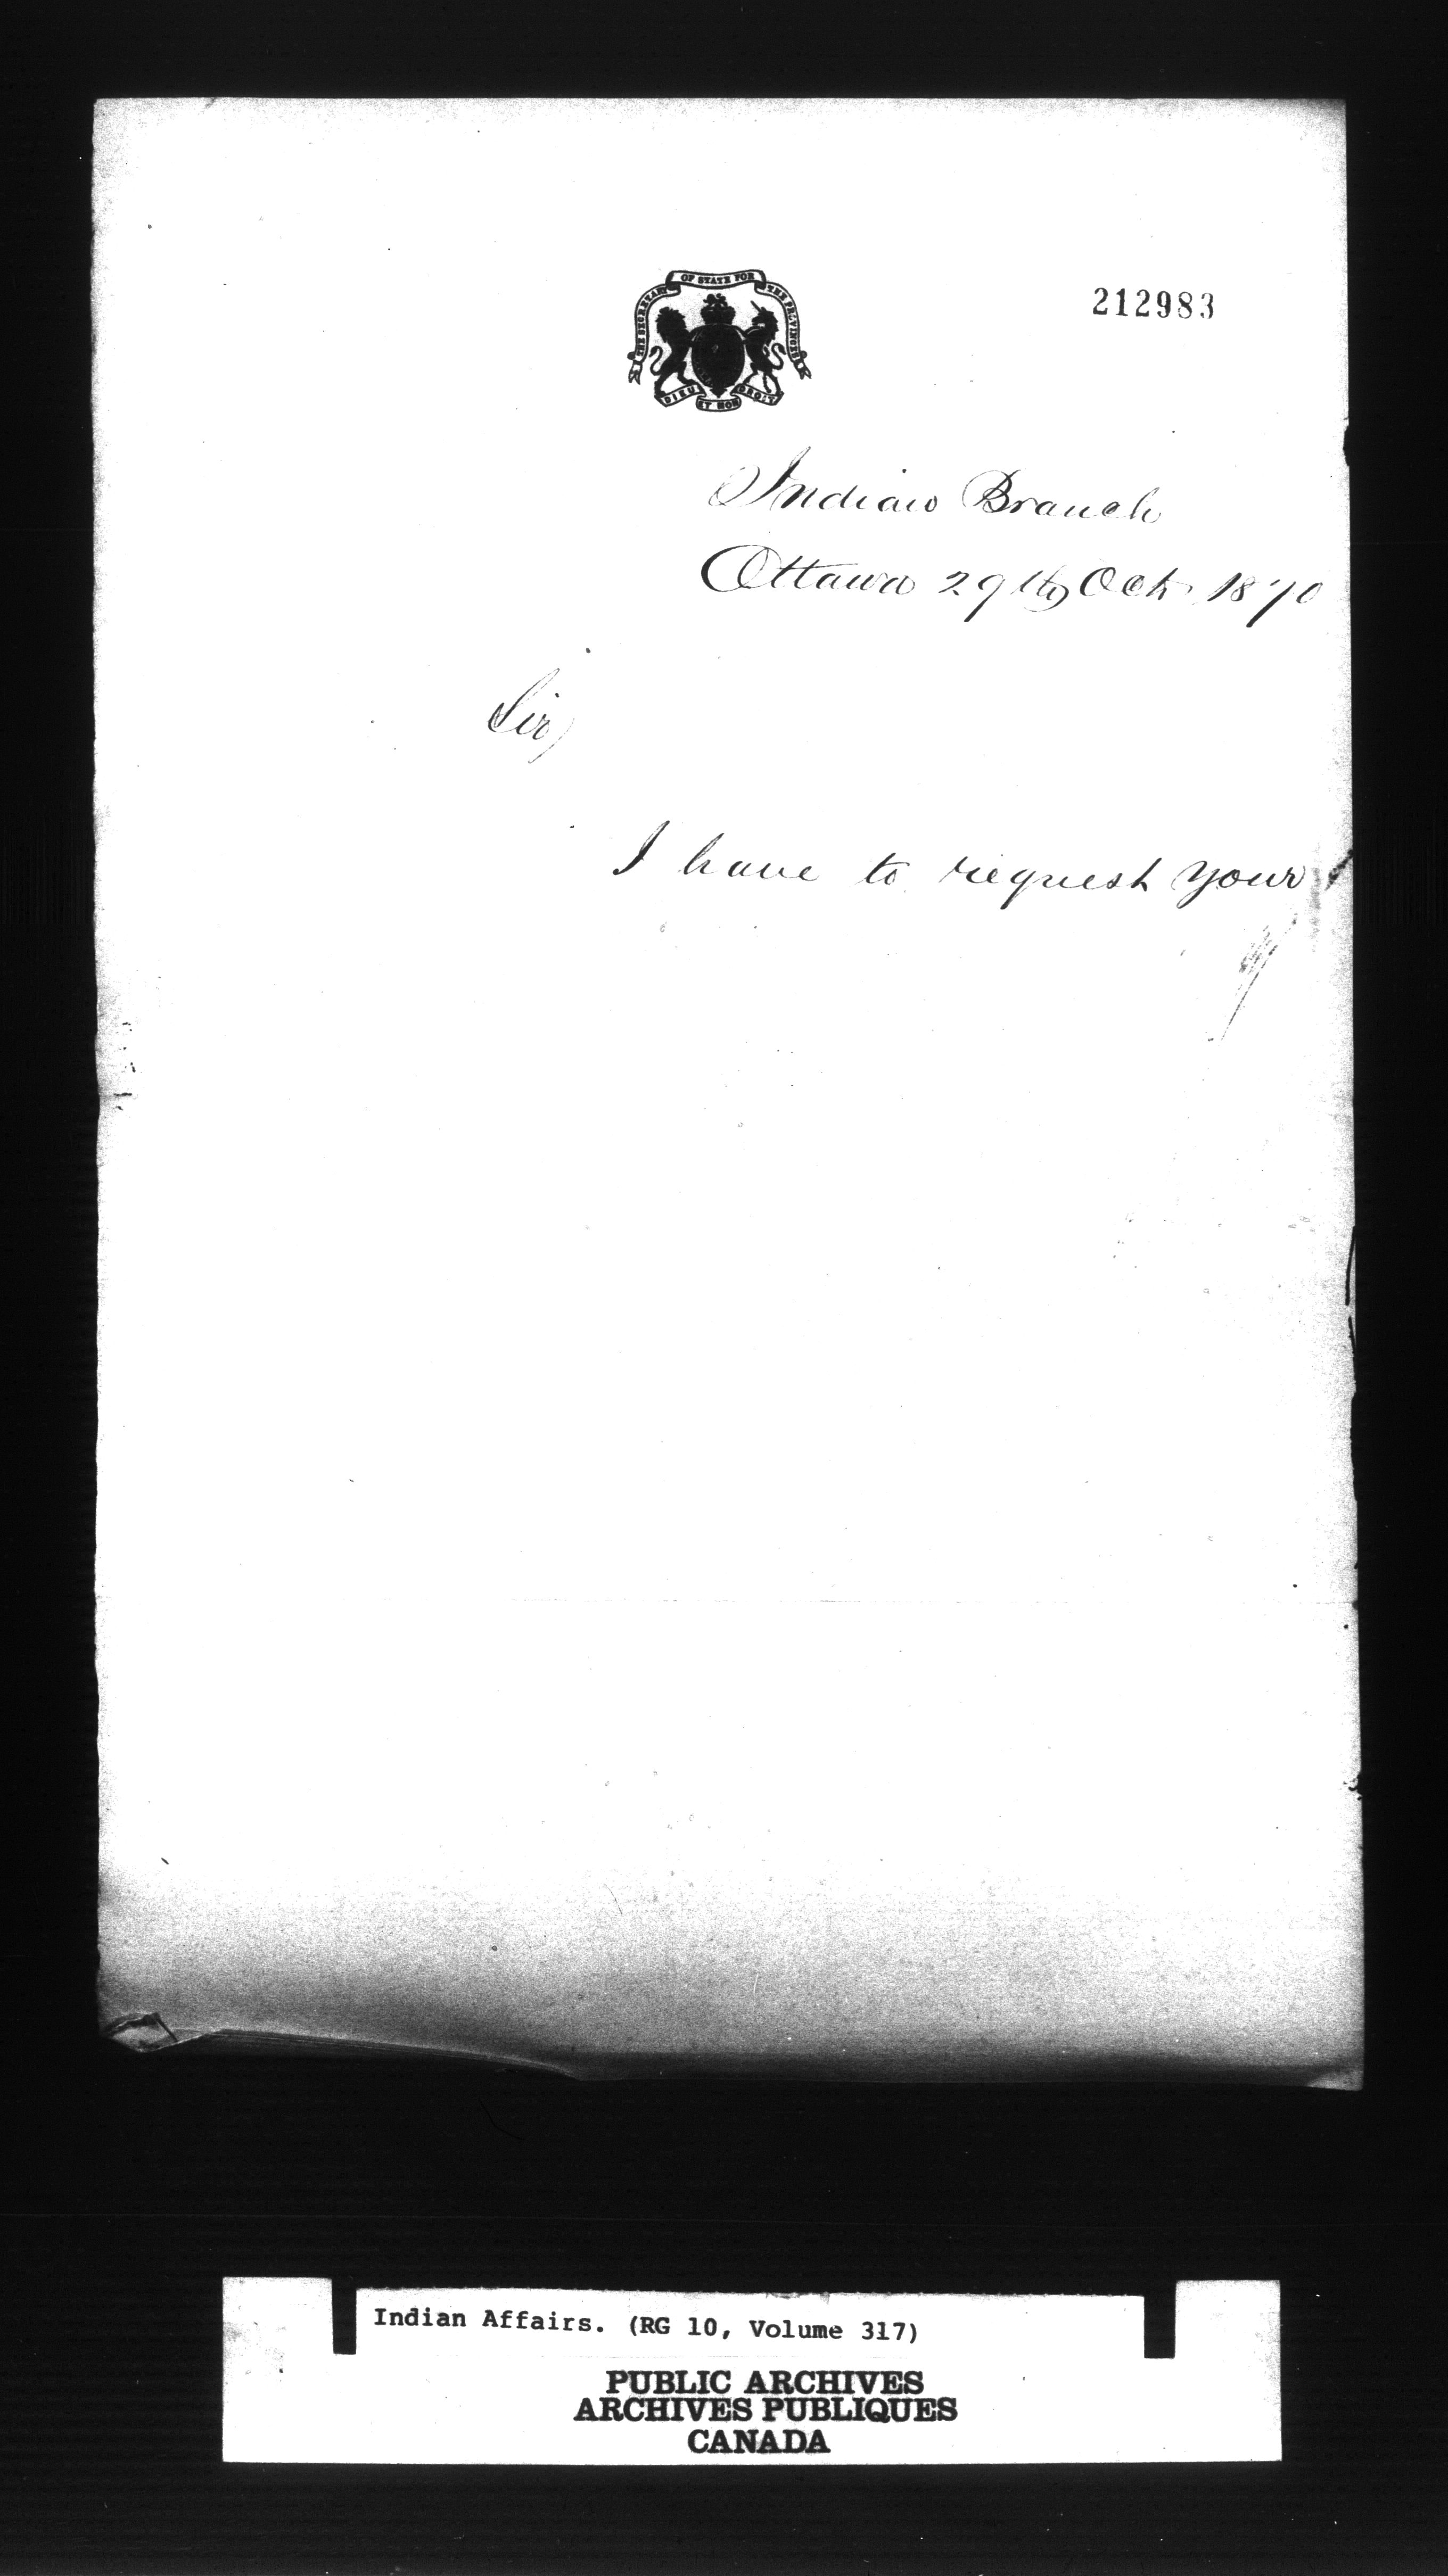 THE SECRETARY OF STATE FOR THE PROVINCES
DIEU ET MON DROIT
212983
Indian Branch
Ottawa 29th Oct. 1870
Sir,
I have to request your
Indian Affairs. (RG 10, Volume 317)
PUBLIC ARCHIVES
ARCHIVES PUBLIQUES
CANADA